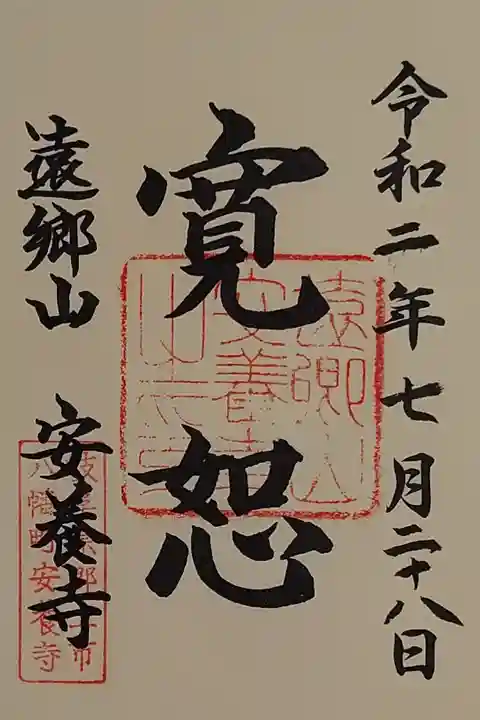 令和二年七月二十八日
寛恕
遠郷山 安養寺
遠郷山
安養寺
之印
八幡町安養寺